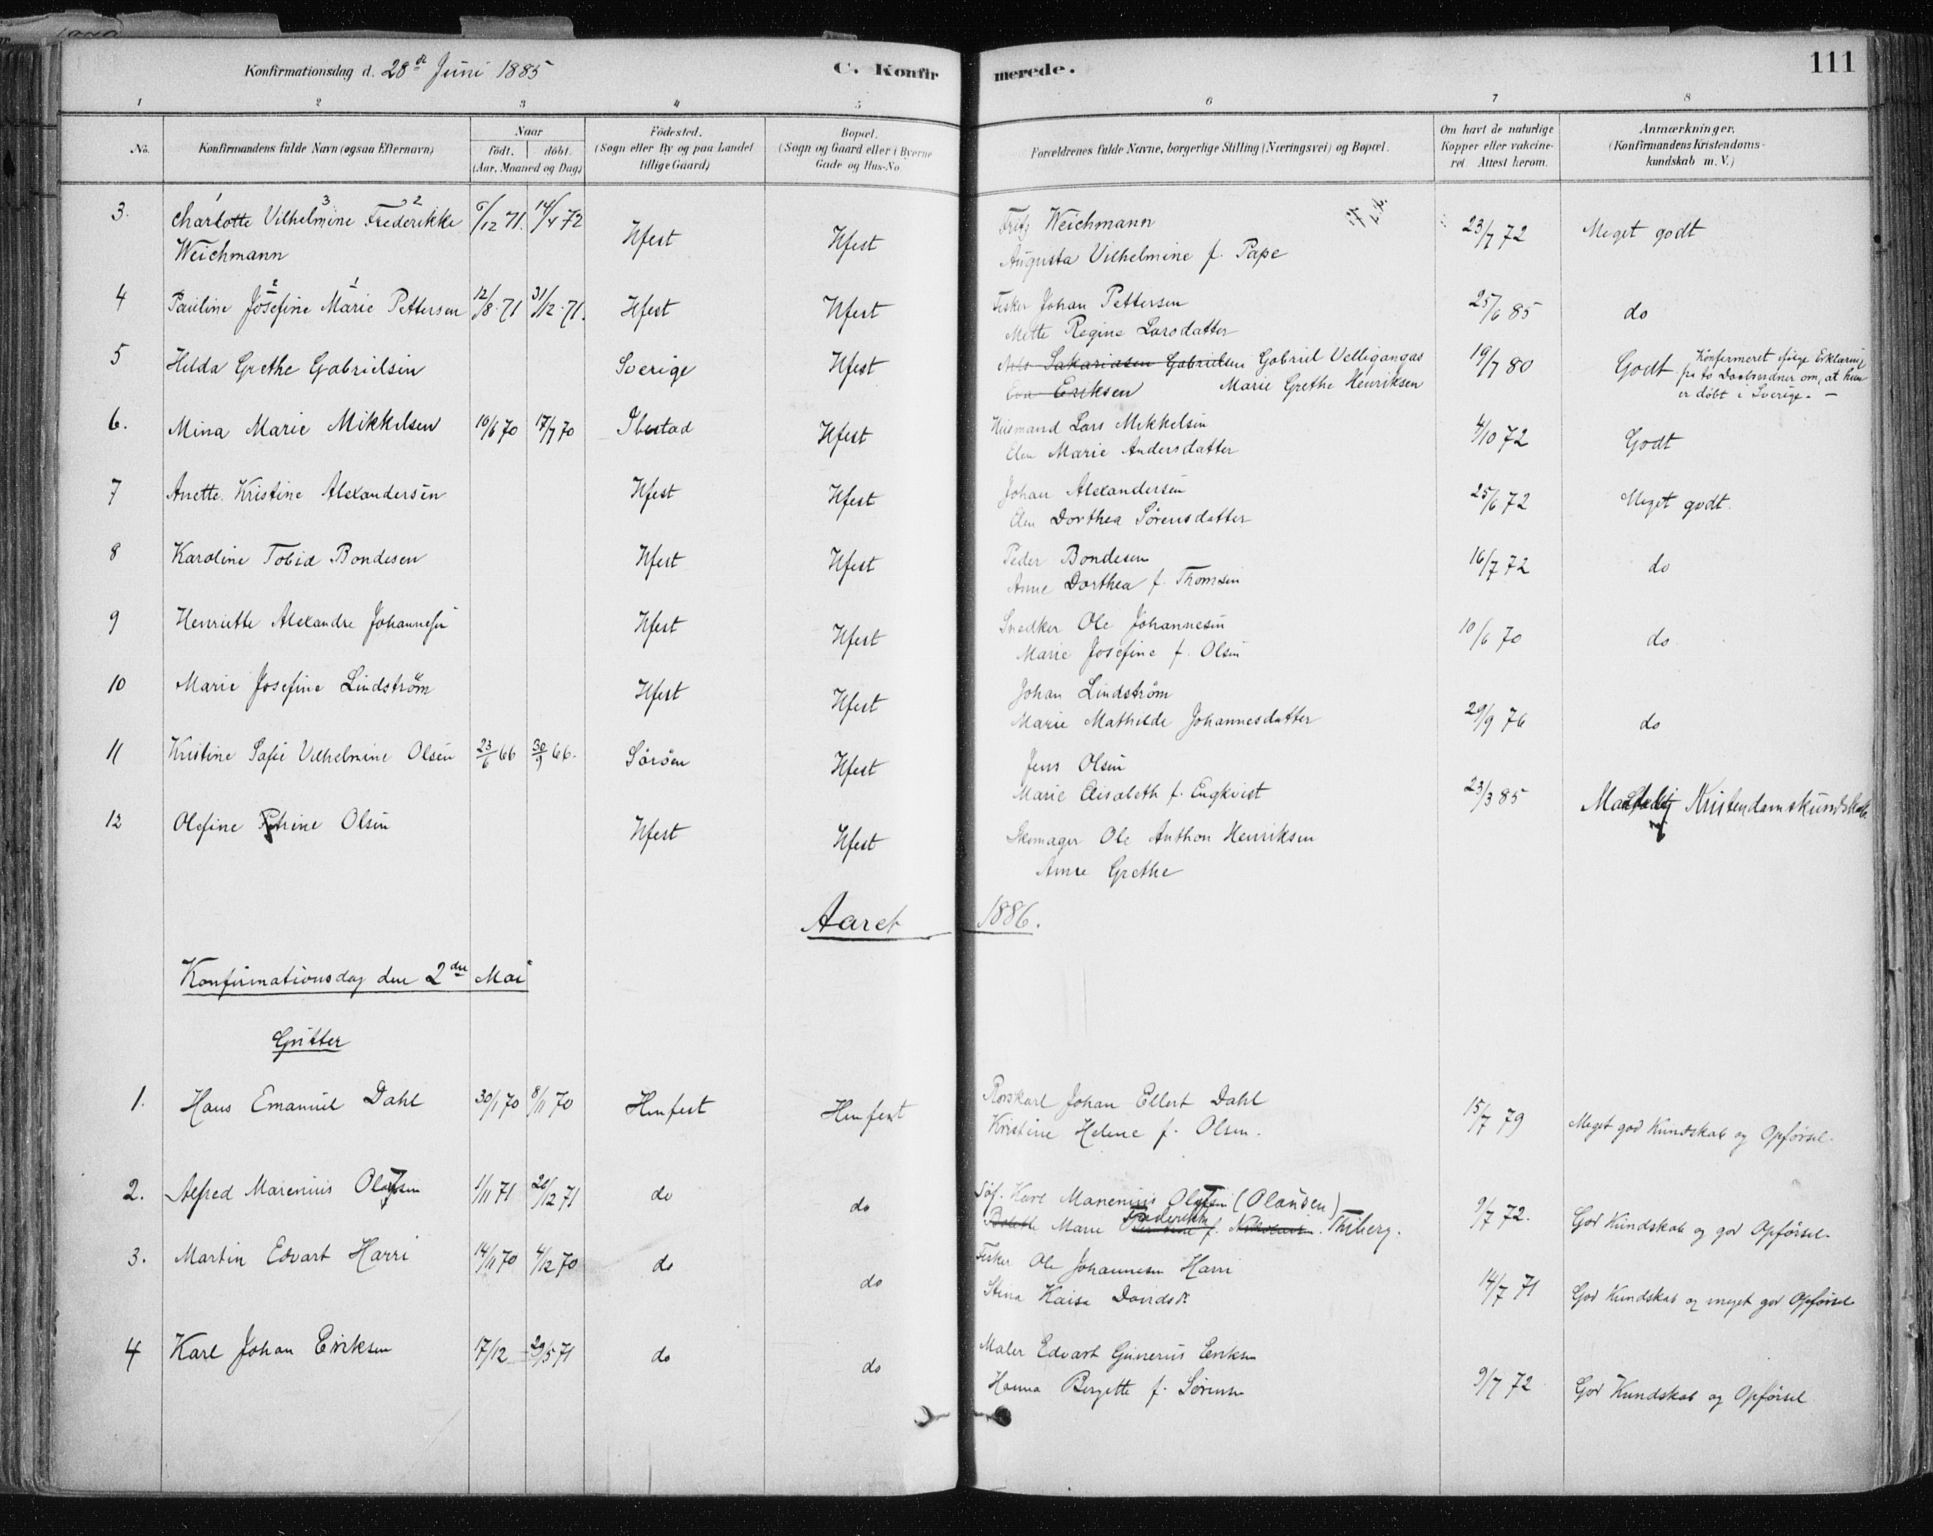 Konfirmationsdag d. 28de Juni 1885 C. Konfirmerede. 111
1 2 3 4 5 6 7 8
No. Konfirmandens fulde Navn (ogsaa Efternavn) Naar født. døbt. (Aar, Maaned og Dag) Fødested. (Sogn eller By og paa Landet tillige Gaard) Bopæl. (Sogn og Gaard eller i Byerne Gade og Hus-No Forældrenes fulde Navne, borgerlige Stilling (Næringsvei) og Bopæl. Om havt de naturlige Kopper eller vakcineret. Attest herom. Anmærkninger, (Konfirmandens Kristendomskundskab m. V.)
3. Charlotte Vilhelmine Frederikke 6/12 71. 14/4 72 Hfest Hfest Fritz Weichmann 23/7 72 Meget godt
Weichmann Augusta Vilhelmine f. Pape
4 Pauline Josefine Marie Pettersen 12/8 71 31/12 71. Hfest Hfest Fisker Johan Pettersen 25/6 85 do
Mette Regine Larsdatter
5 Hilda Grethe Gabrielsen Sverige Hfest Nils Sakariasen Gabrielsen Gabriel Velligangas 19/7 80 Godt Konfirmeret ifølge Erklæring
Eva Eriksen Marie Grethe Henriksen fra to Daabvidner om, at hun
er døbt i Sverige. –
6. Mina Marie Mikkelsen 16/6 70 17/7 70 Ibestad Hfest Husmand Lars Mikkelsen 4/10 72 Godt
Elen Marie Andersdatter
7 Anette Kristine Alexandersen Hfest Hfest Johan Alexandersen 25/6 72 Meget godt.
Elen Dorthea Sørensdatter
8 Karoline Tobia Bondesen Hfest Hfest Peder Bondesen 16/7 72 do
Anne Dorthea f. Thomsen
9 Henriette Alexandre Johannesen Hfest Hfest Snedker Ole Johannesen 10/6 70 do
Marie Josefine f. Olsen
10 Marie Josefine Lindstrøm Hfest Hfest Johan Lindstrøm 29/9 76 do
Marie Mathilde Johannesdatter
11 Kristine Sofie Vilhelmine Olsen 23/6 66 30/9 66. Sørøen Hfest Jens Olsen 23/3 85 Maadelig Kristendomskundskab
Marie Elisabeth f. Engkvist
12 Olefine Petrine Olsen Hfest Hfest Skomager Ole Anthon Henriksen
Anne Grethe
Aaret 1886.
Konfirmationsdag den 2den Mai
Gutter
1. Hans Emanuel Dahl 30/1 70 8/11 70 Hmfest Hmfest Rorskarl Johan Ellert Dahl 15/7 79 Meget god Kundskab og Opførsel.
Kristine Helene f. Olsen.
2. Alfred Marenius Olafsen 1/11 71 26/12 71 do do Marenius Olafsen (Olausen) 9/7 72. God Kundskab og god Opførsel.
Bolette Marie Frederikke f. Nikolaisen Thiberg.
3. Martin Edvart Harri 14/11 70 4/12 70 do do Fisker Ole Johannesen Harri 14/7 71 God Kundskab og meget god Opførsel
Stina Kaisa Davidsd.
4 Karl Johan Eriksen 17/12 29/5 71 do do Maler Edvart Gunerius Eriksen 9/7 72 God Kundskab og Opførsel
Hanna Bergitte f. Sørensen